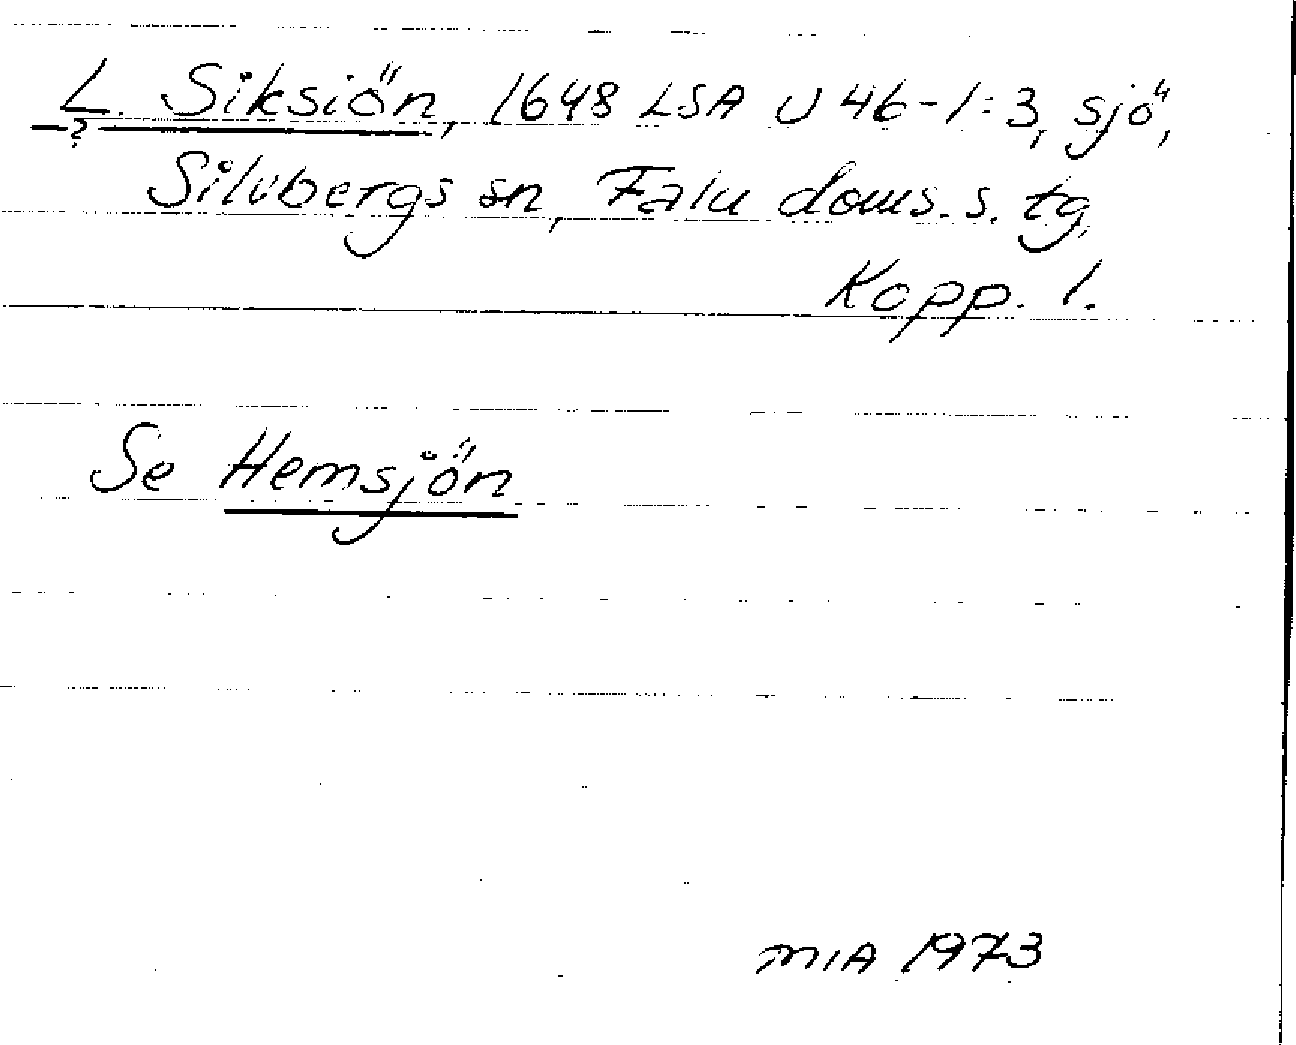 L. Siksiön, 1648 LSA U 46-1:3, sjö,
?
Silvbergs sn, Falu doms.s. tg,
Kopp. l.
Se Hemsjön
MIA 1973